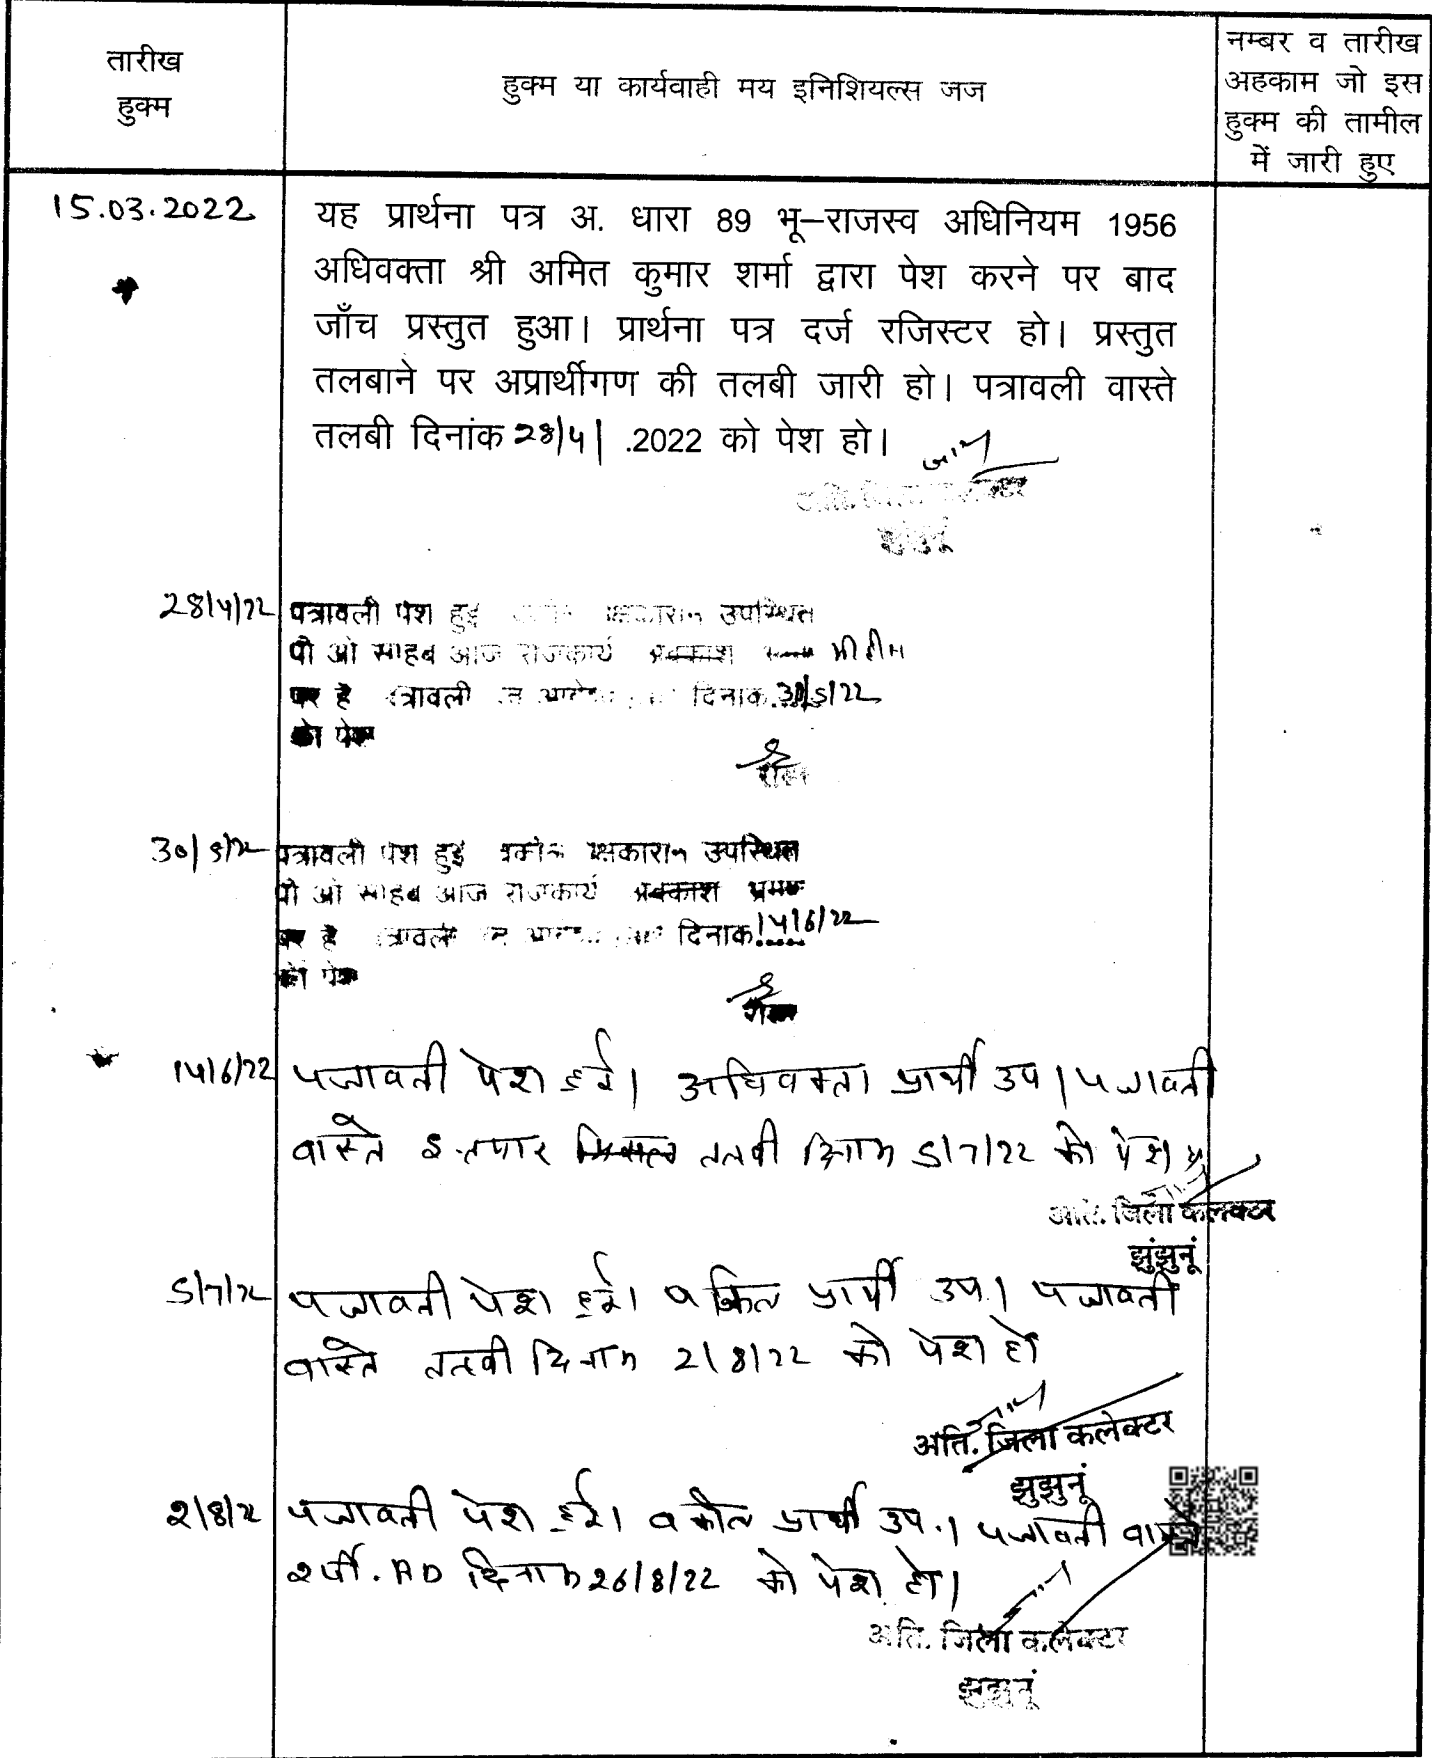 तारीख
हुक्म
हुक्म या कार्यवाही मय इनिशियल्स जज
नम्बर व तारीख
अहकाम जो इस
हुक्म की तामील
में जारी हुए
15.03.2022
यह प्रार्थना पत्र अ. धारा 89 भू–राजस्व अधिनियम 1956
अधिवक्ता श्री अमित कुमार शर्मा द्वारा पेश करने पर बाद
जाँच प्रस्तुत हुआ। प्रार्थना पत्र दर्ज रजिस्टर हो। प्रस्तुत
तलबाने पर अप्रार्थीगण की तलबी जारी हो। पत्रावली वास्ते
तलबी दिनांक 28/4/ .2022 को पेश हो।
अति. जिला कलेक्टर
झुंझुनूं
28/4/22 पत्रावली पेश हुई पक्षकारान उपस्थित
पी ओ साहब आज राजकार्य अवकाश मीटींग
पर है पत्रावली दिनांक 30/5/22
को पेश
30/5/22 पत्रावली पेश हुई वकील पक्षकारान उपस्थित
पी ओ साहब आज राजकार्य अवकाश भ्रमण
पर है पत्रावली दिनांक 14/6/22
को पेश
14/6/22 पत्रावली पेश हुई। अधिवक्ता प्रार्थी उप। पत्रावली
वास्ते इन्तजार तलबी दिनांक 5/7/22 को पेश हो
अति. जिला कलक्टर
झुंझुनूं
5/7/22 पत्रावली पेश हुई। वकील प्रार्थी उप.। पत्रावली
वास्ते तलबी दिनांक 2/8/22 को पेश हो
अति. जिला कलेक्टर
झुझुनूं
2/8/22 पत्रावली पेश हुई। वकील प्रार्थी उप.। पत्रावली वास्ते
रजी. AD दिनांक 26/8/22 को पेश हो।
अति. जिला कलेक्टर
झुझुनूं